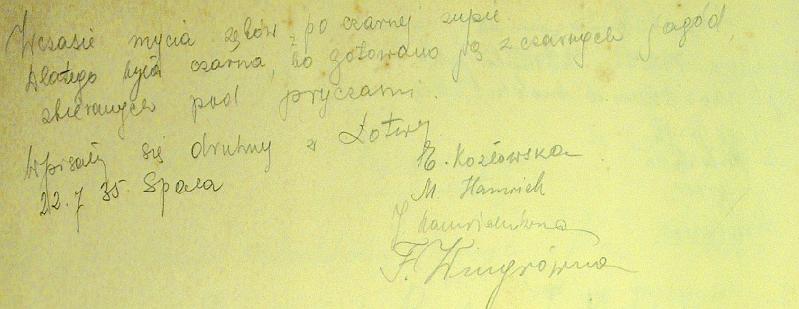 Wczasie mycia zębów po czarnej zupie
Dlatego była czarna, bo gotowano ją z czarnych jagód,
zbieranych pod pryczami.
Wpisały się druhny z Łotwy
22.7 35. Spała
E. Kozłowska
M. Hamrich
F. Wingrówna